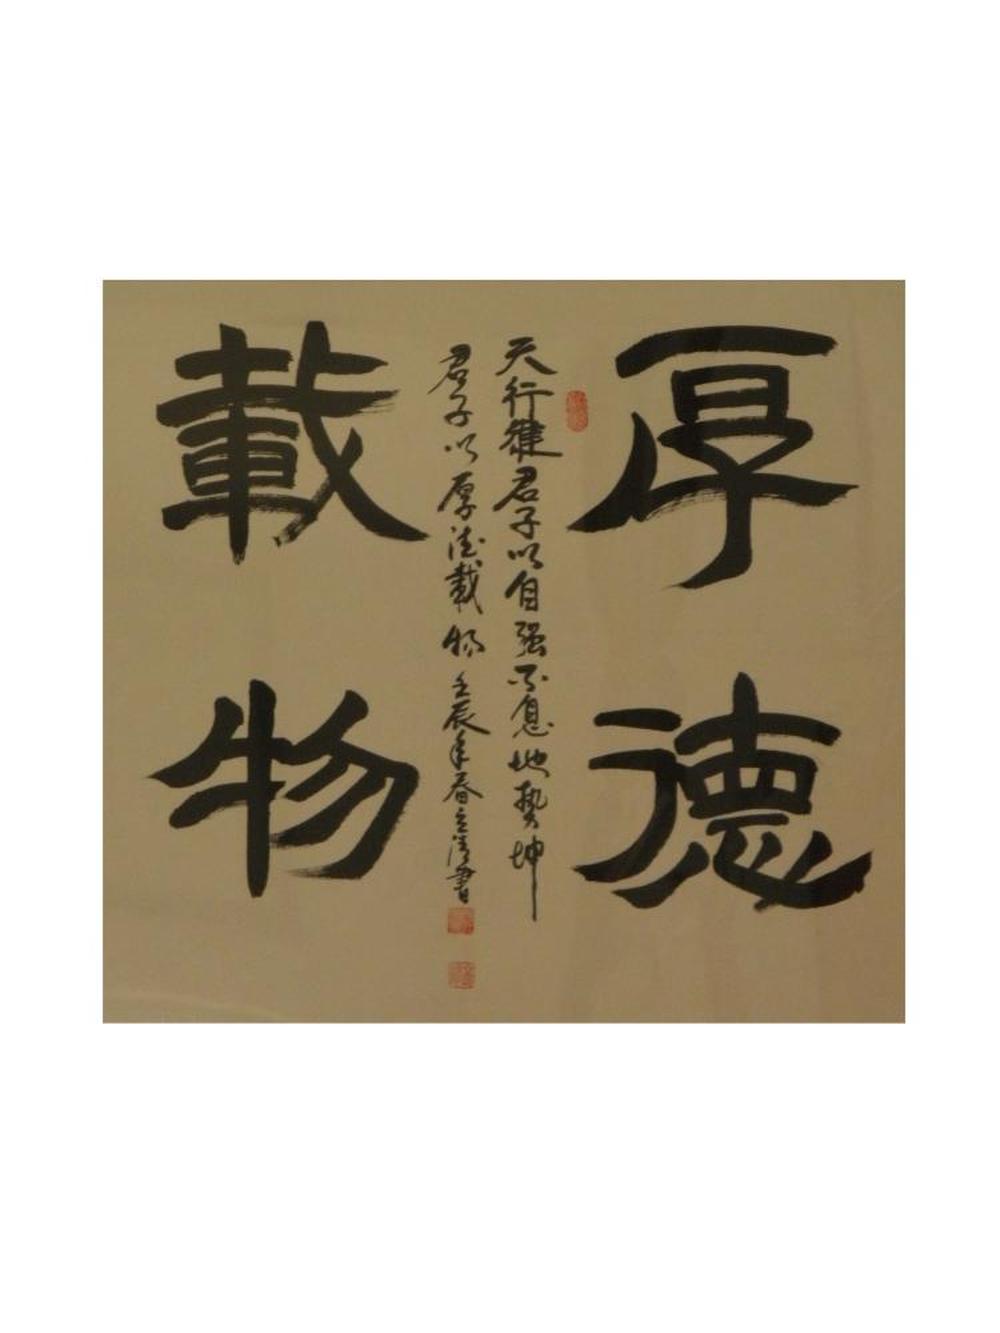 厚德
載物
天行健君子以自强不息地势坤
君子以厚德載物 壬辰年春立清書